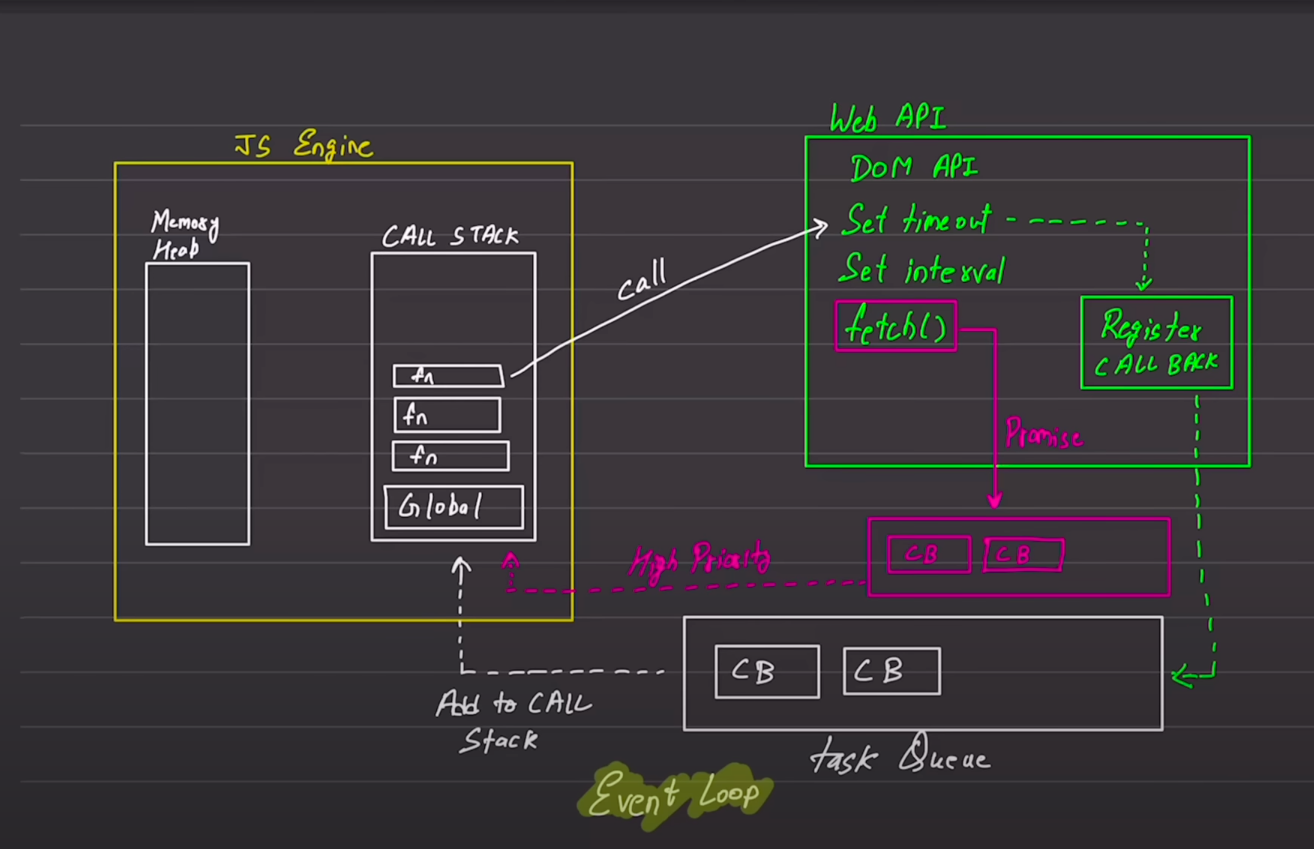 JS Engine
Memory
Heap
CALL STACK
fn
fn
fn
Global
call
Web API
DOM API
Set timeout
Set interval
fetch()
Register
CALL BACK
Promise
High Priority
CB
CB
CB
CB
Add to CALL
Stack
task Queue
Event Loop